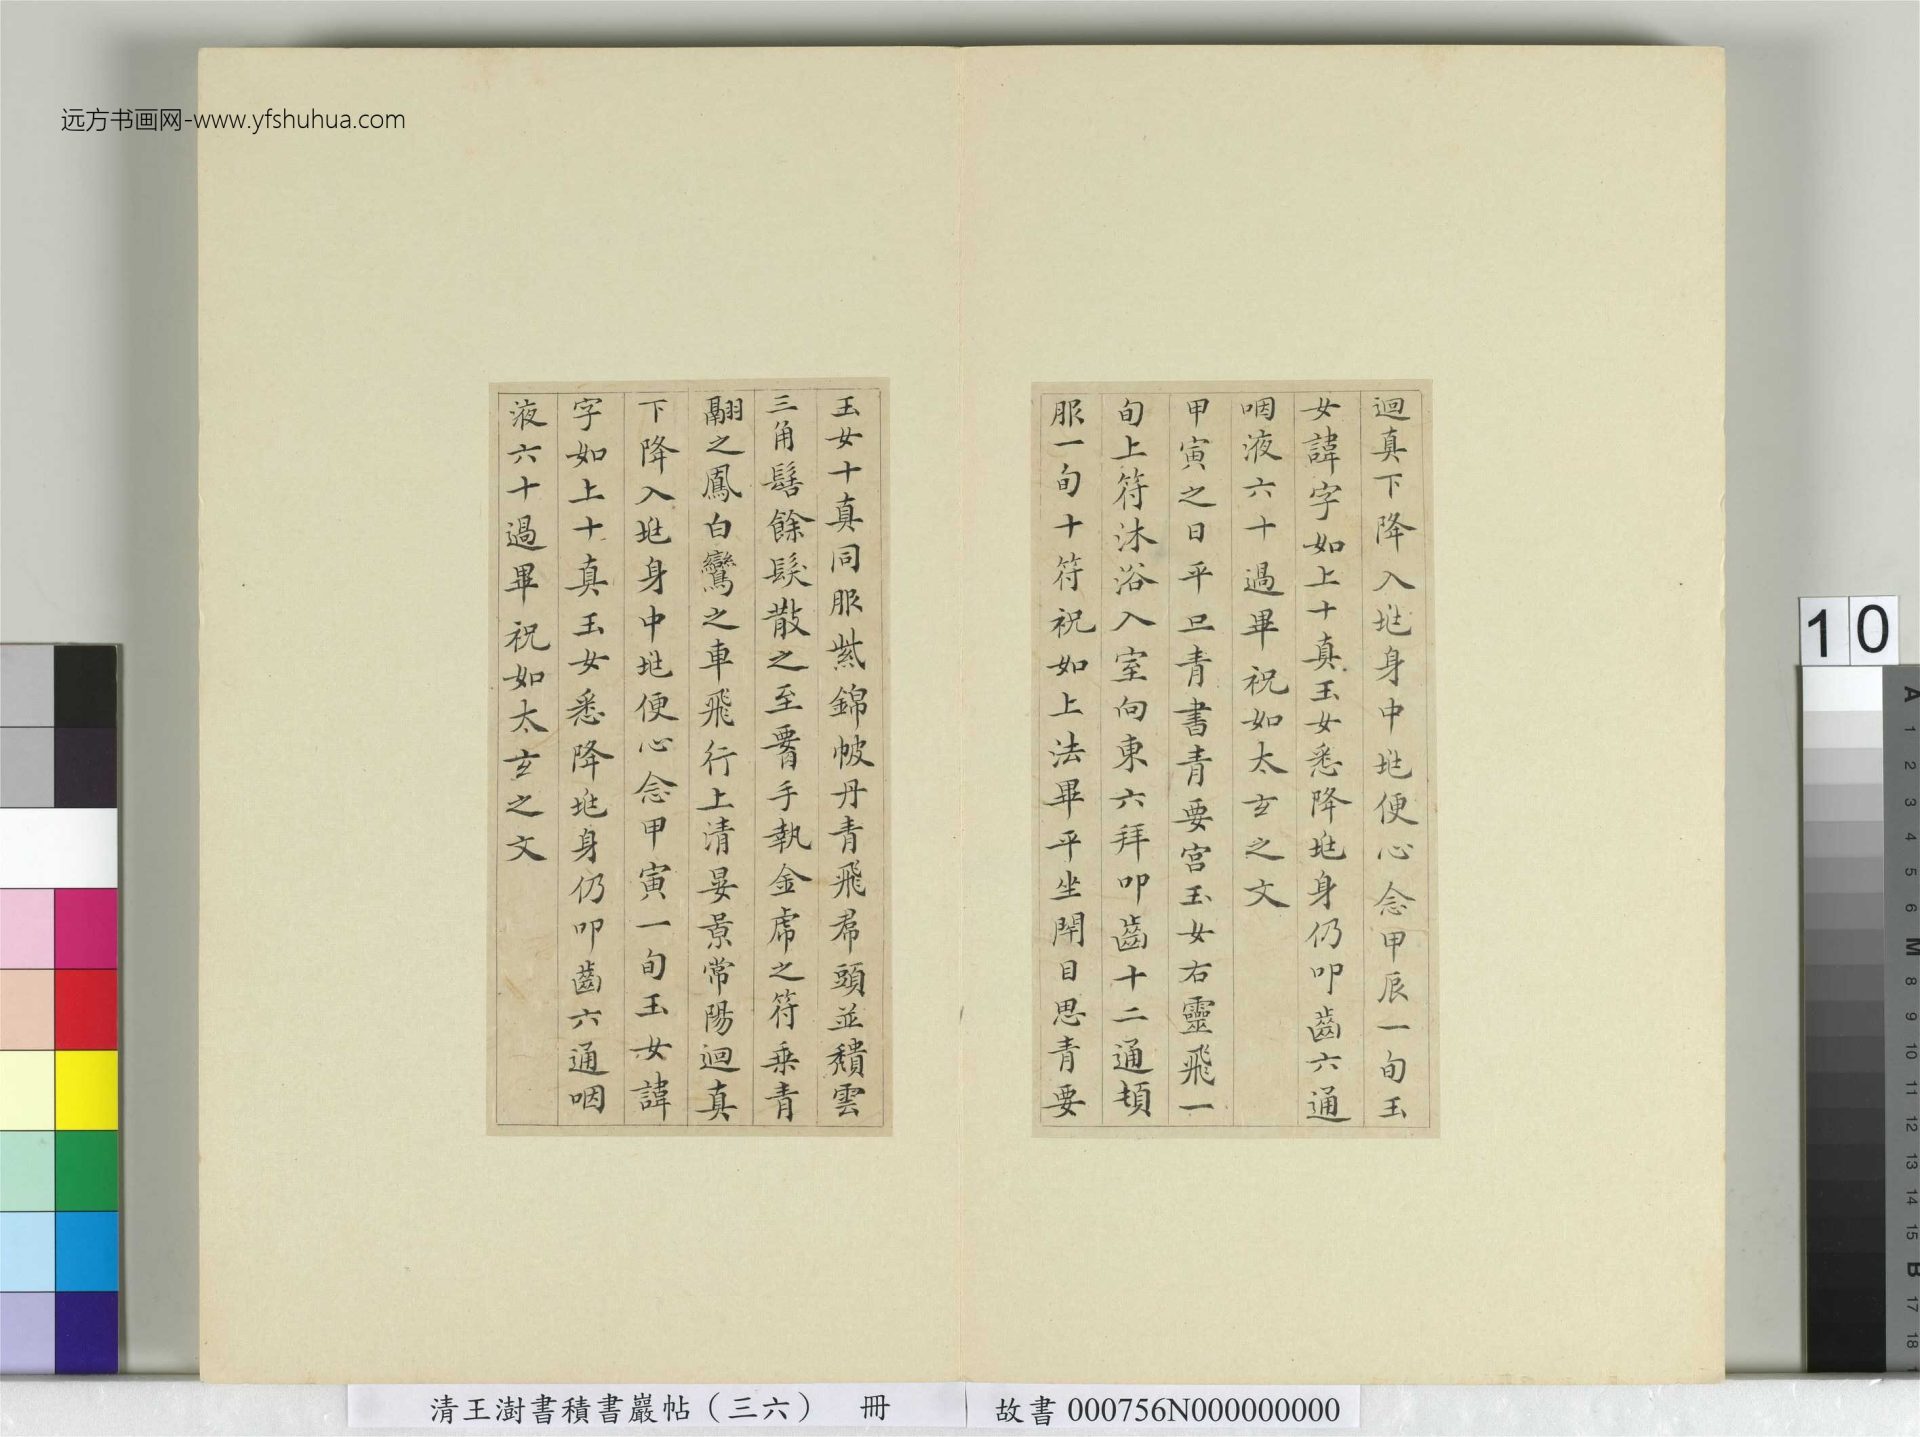 远方书画网-www.yfshuhua.com
迴真下降入埊身中埊便心念甲辰一旬玉
女諱字如上十真玉女悉降埊身仍叩齒六通
咽液六十過畢祝如太玄之文
甲寅之日平旦青書青要宮玉女右靈飛一
旬上符沐浴入室向東六拜叩齒十二通頓
服一旬十符祝如上法畢平坐閇目思青要
玉女十真同服紫錦帔丹青飛帬頭並穨雲
三角髻餘髮散之至𦝫手執金虎之符乗青
翮之鳳白鸞之車飛行上清晏景常陽迴真
下降入埊身中埊便心念甲寅一旬玉女諱
字如上十真玉女悉降埊身仍叩齒六通咽
液六十過畢祝如太玄之文
清王澍書積書巖帖（三六） 冊
故書 000756N000000000
10
A
1
2
3
4
5
6
M
8
9
10
11
12
13
14
15
B
17
18